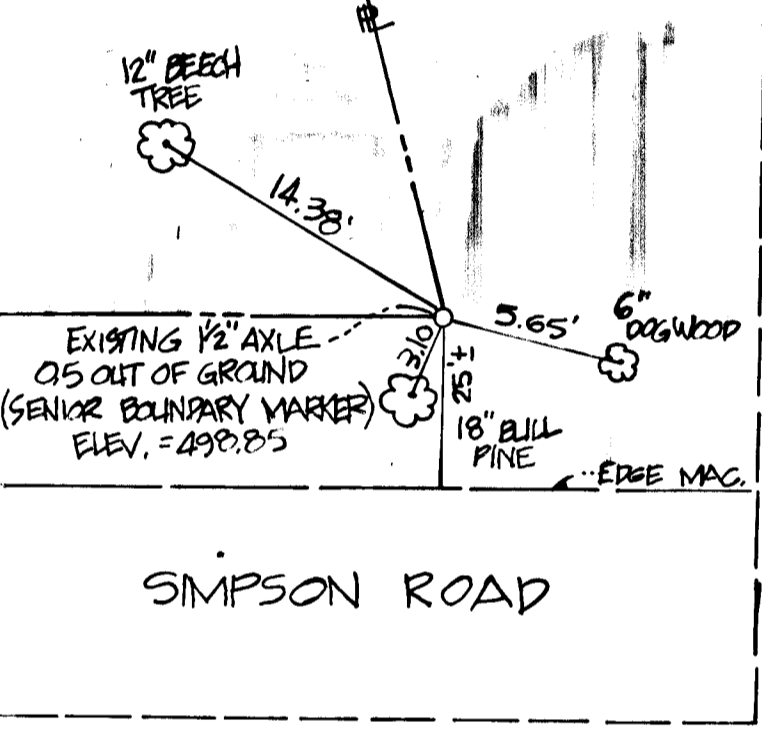 PL
12" BEECH
TREE
14.38'
5.65'
6"
DOGWOOD
EXISTING 1/2" AXLE
0.5 OUT OF GROUND
(SENIOR BOUNDARY MARKER)
ELEV. = 498.85
3.10
25'±
18" BULL
PINE
EDGE MAC.
SIMPSON ROAD